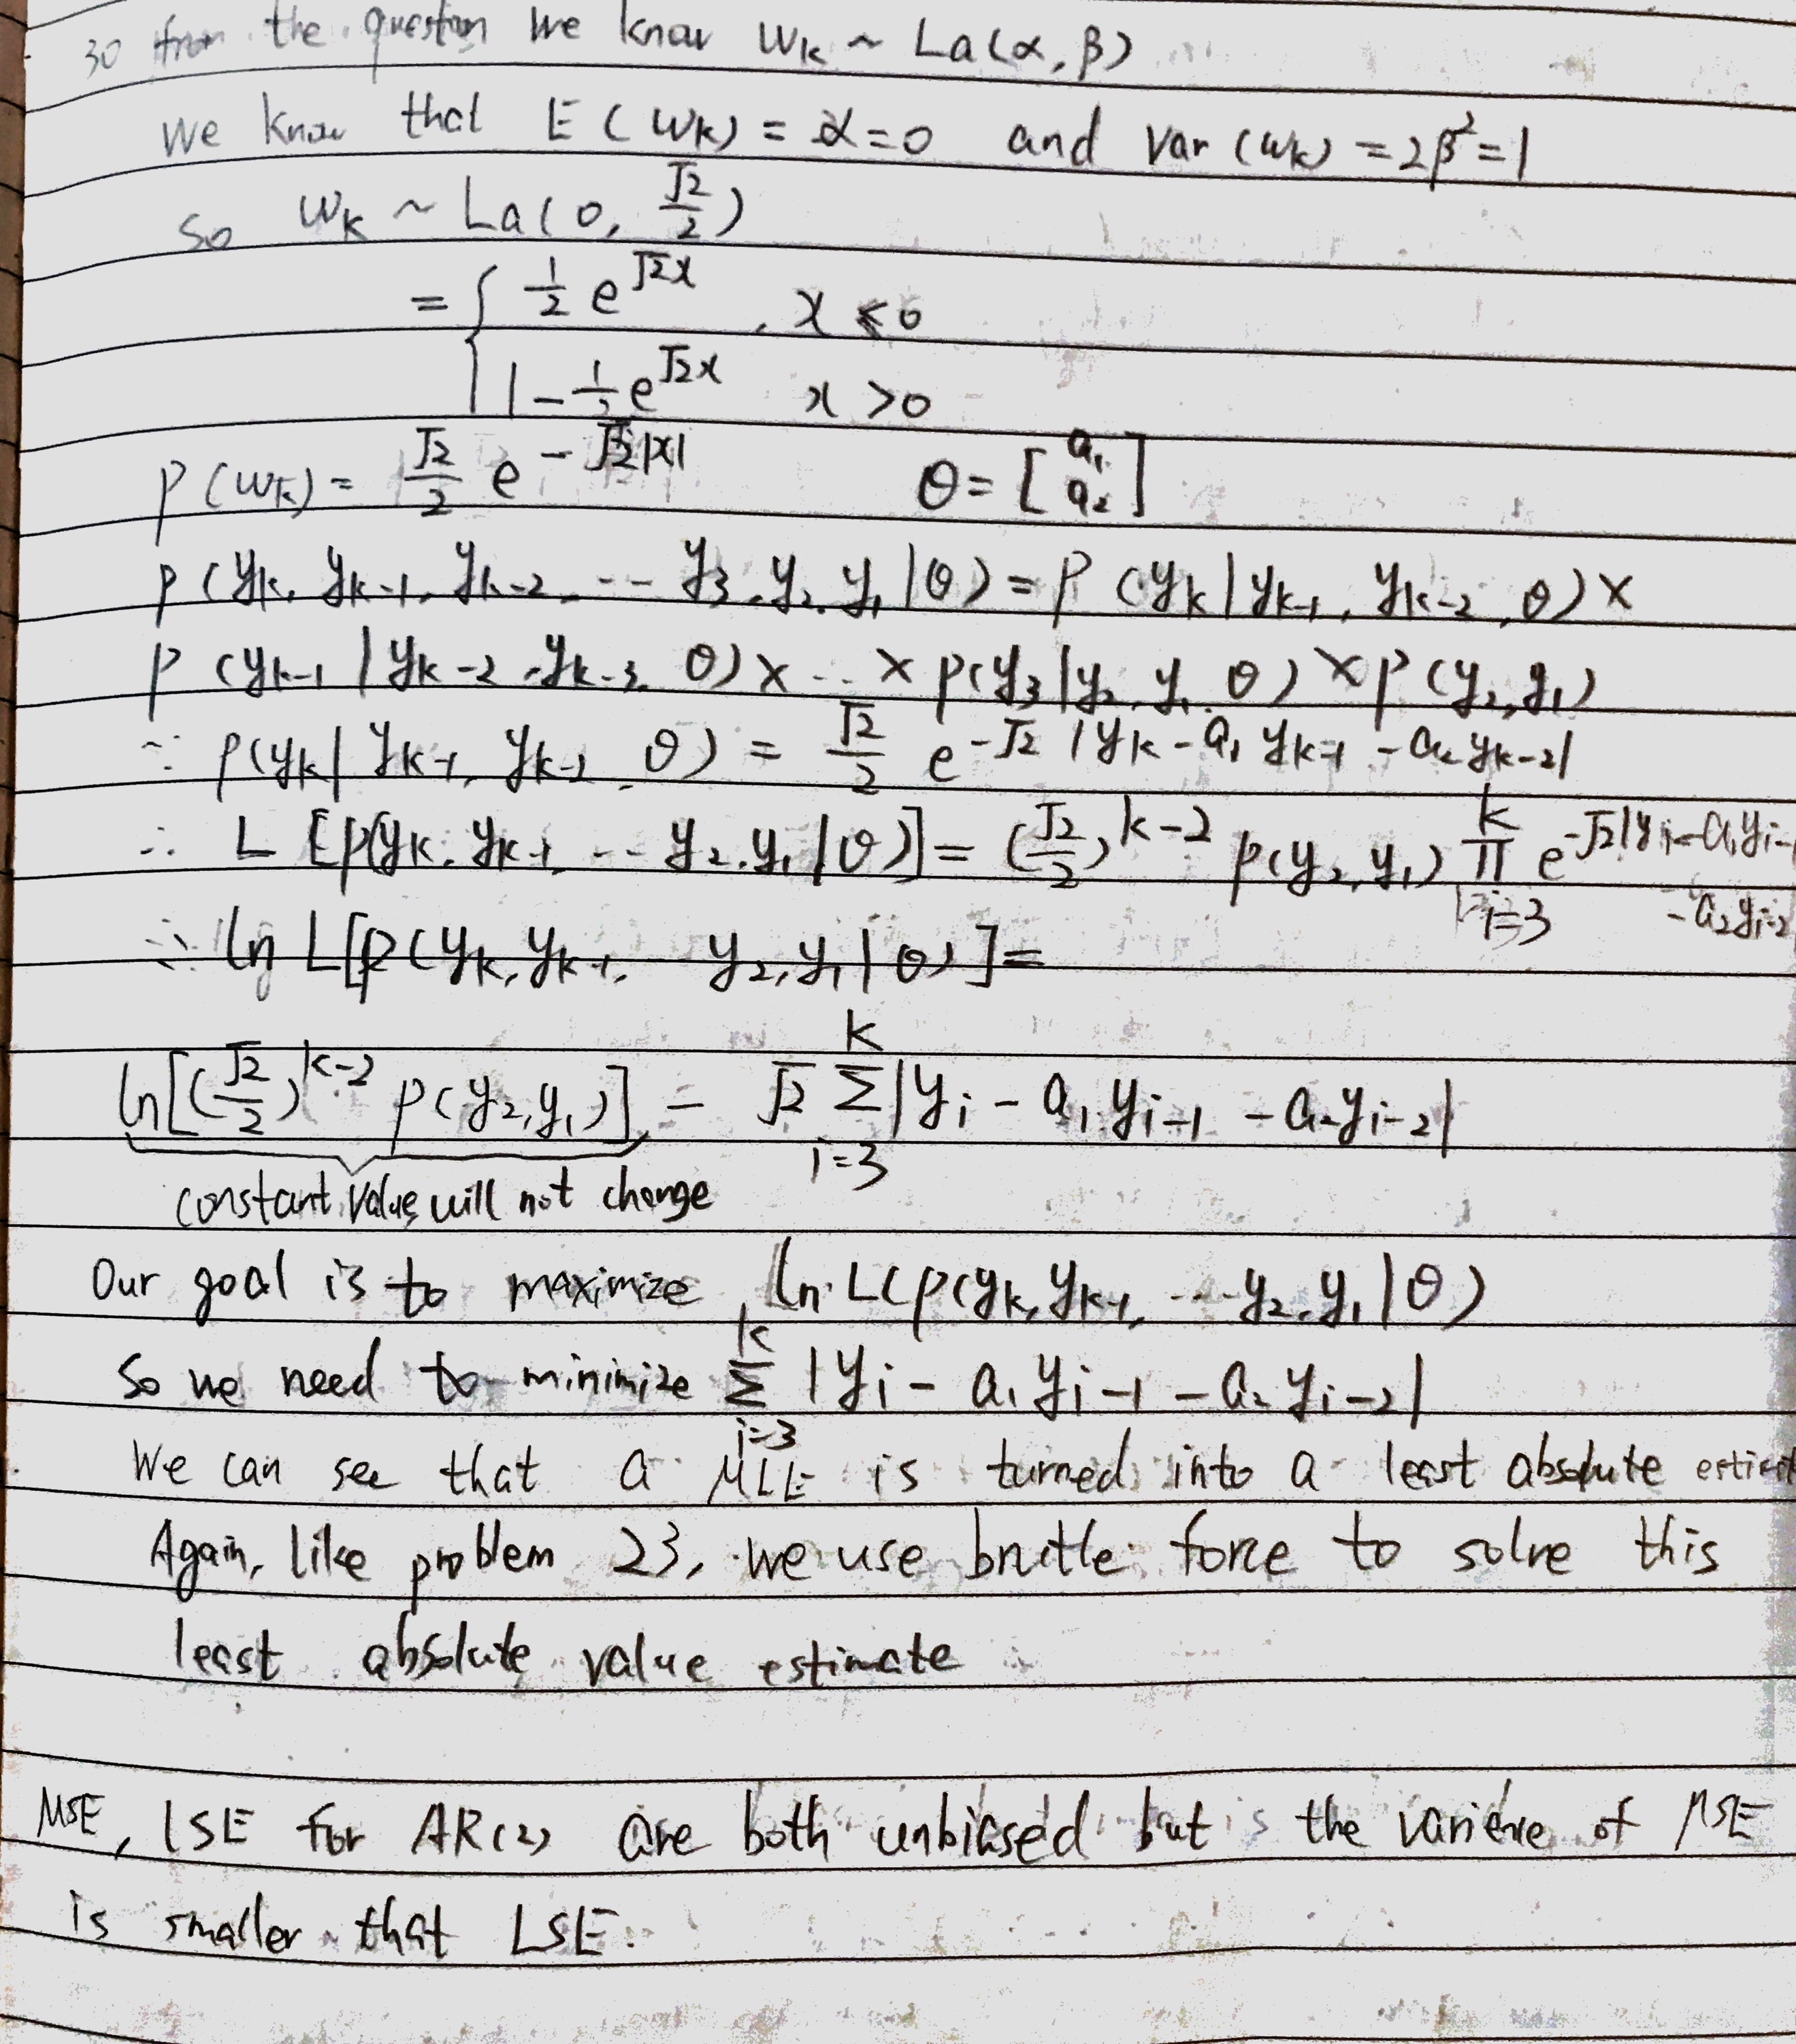 30 from the question we know Wk ~ La(α, β)
We know that E(Wk) = α = 0 and var(Wk) = 2β² = 1
So Wk ~ La(0, √2/2)
= { 1/2 e^{√2x}, x ≤ 0
1 - 1/2 e^{√2x} x > 0
P(Wk) = √2/2 e^{-√2|x|} θ = [a₁ a₂]
P(yk, yk-1, yk-2, -- y3, y2, y1 | θ) = P(yk | yk-1, yk-2, θ) ×
P(yk-1 | yk-2, yk-3, θ) × .. × P(y3 | y2, y1, θ) × P(y2, y1)
∵ P(yk | yk-1, yk-2, θ) = √2/2 e^{-√2 |yk - a₁ yk-1 - a₂ yk-2|}
∴ L[P(yk, yk-1, -- y2, y1 | θ)] = (√2/2)^{k-2} P(y2, y1) ∏_{i=3}^{k} e^{-√2|yi - a₁yi-1 - a₂yi-2
∴ ln L[P(yk, yk-1, -- y2, y1 | θ)] =
ln[(√2/2)^{k-2} P(y2, y1)] - √2 Σ_{i=3}^{k} |yi - a₁ yi-1 - a₂ yi-2|
constant value, will not change
Our goal is to maximize ln L(P(yk, yk-1, --- y2, y1 | θ)
So we need to minimize Σ_{i=3}^{k} |yi - a₁ yi-1 - a₂ yi-2|
We can see that a MLE is turned into a least absolute
Again, like problem 23, we use brutle force to solve this
least absolute value estimate
MSE, LSE for AR(2) are both unbiased but is the varience of MSE
is smaller that LSE.